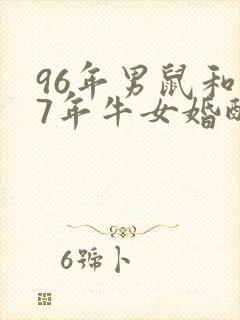 96年男鼠和
7年牛女婚配
6號卜